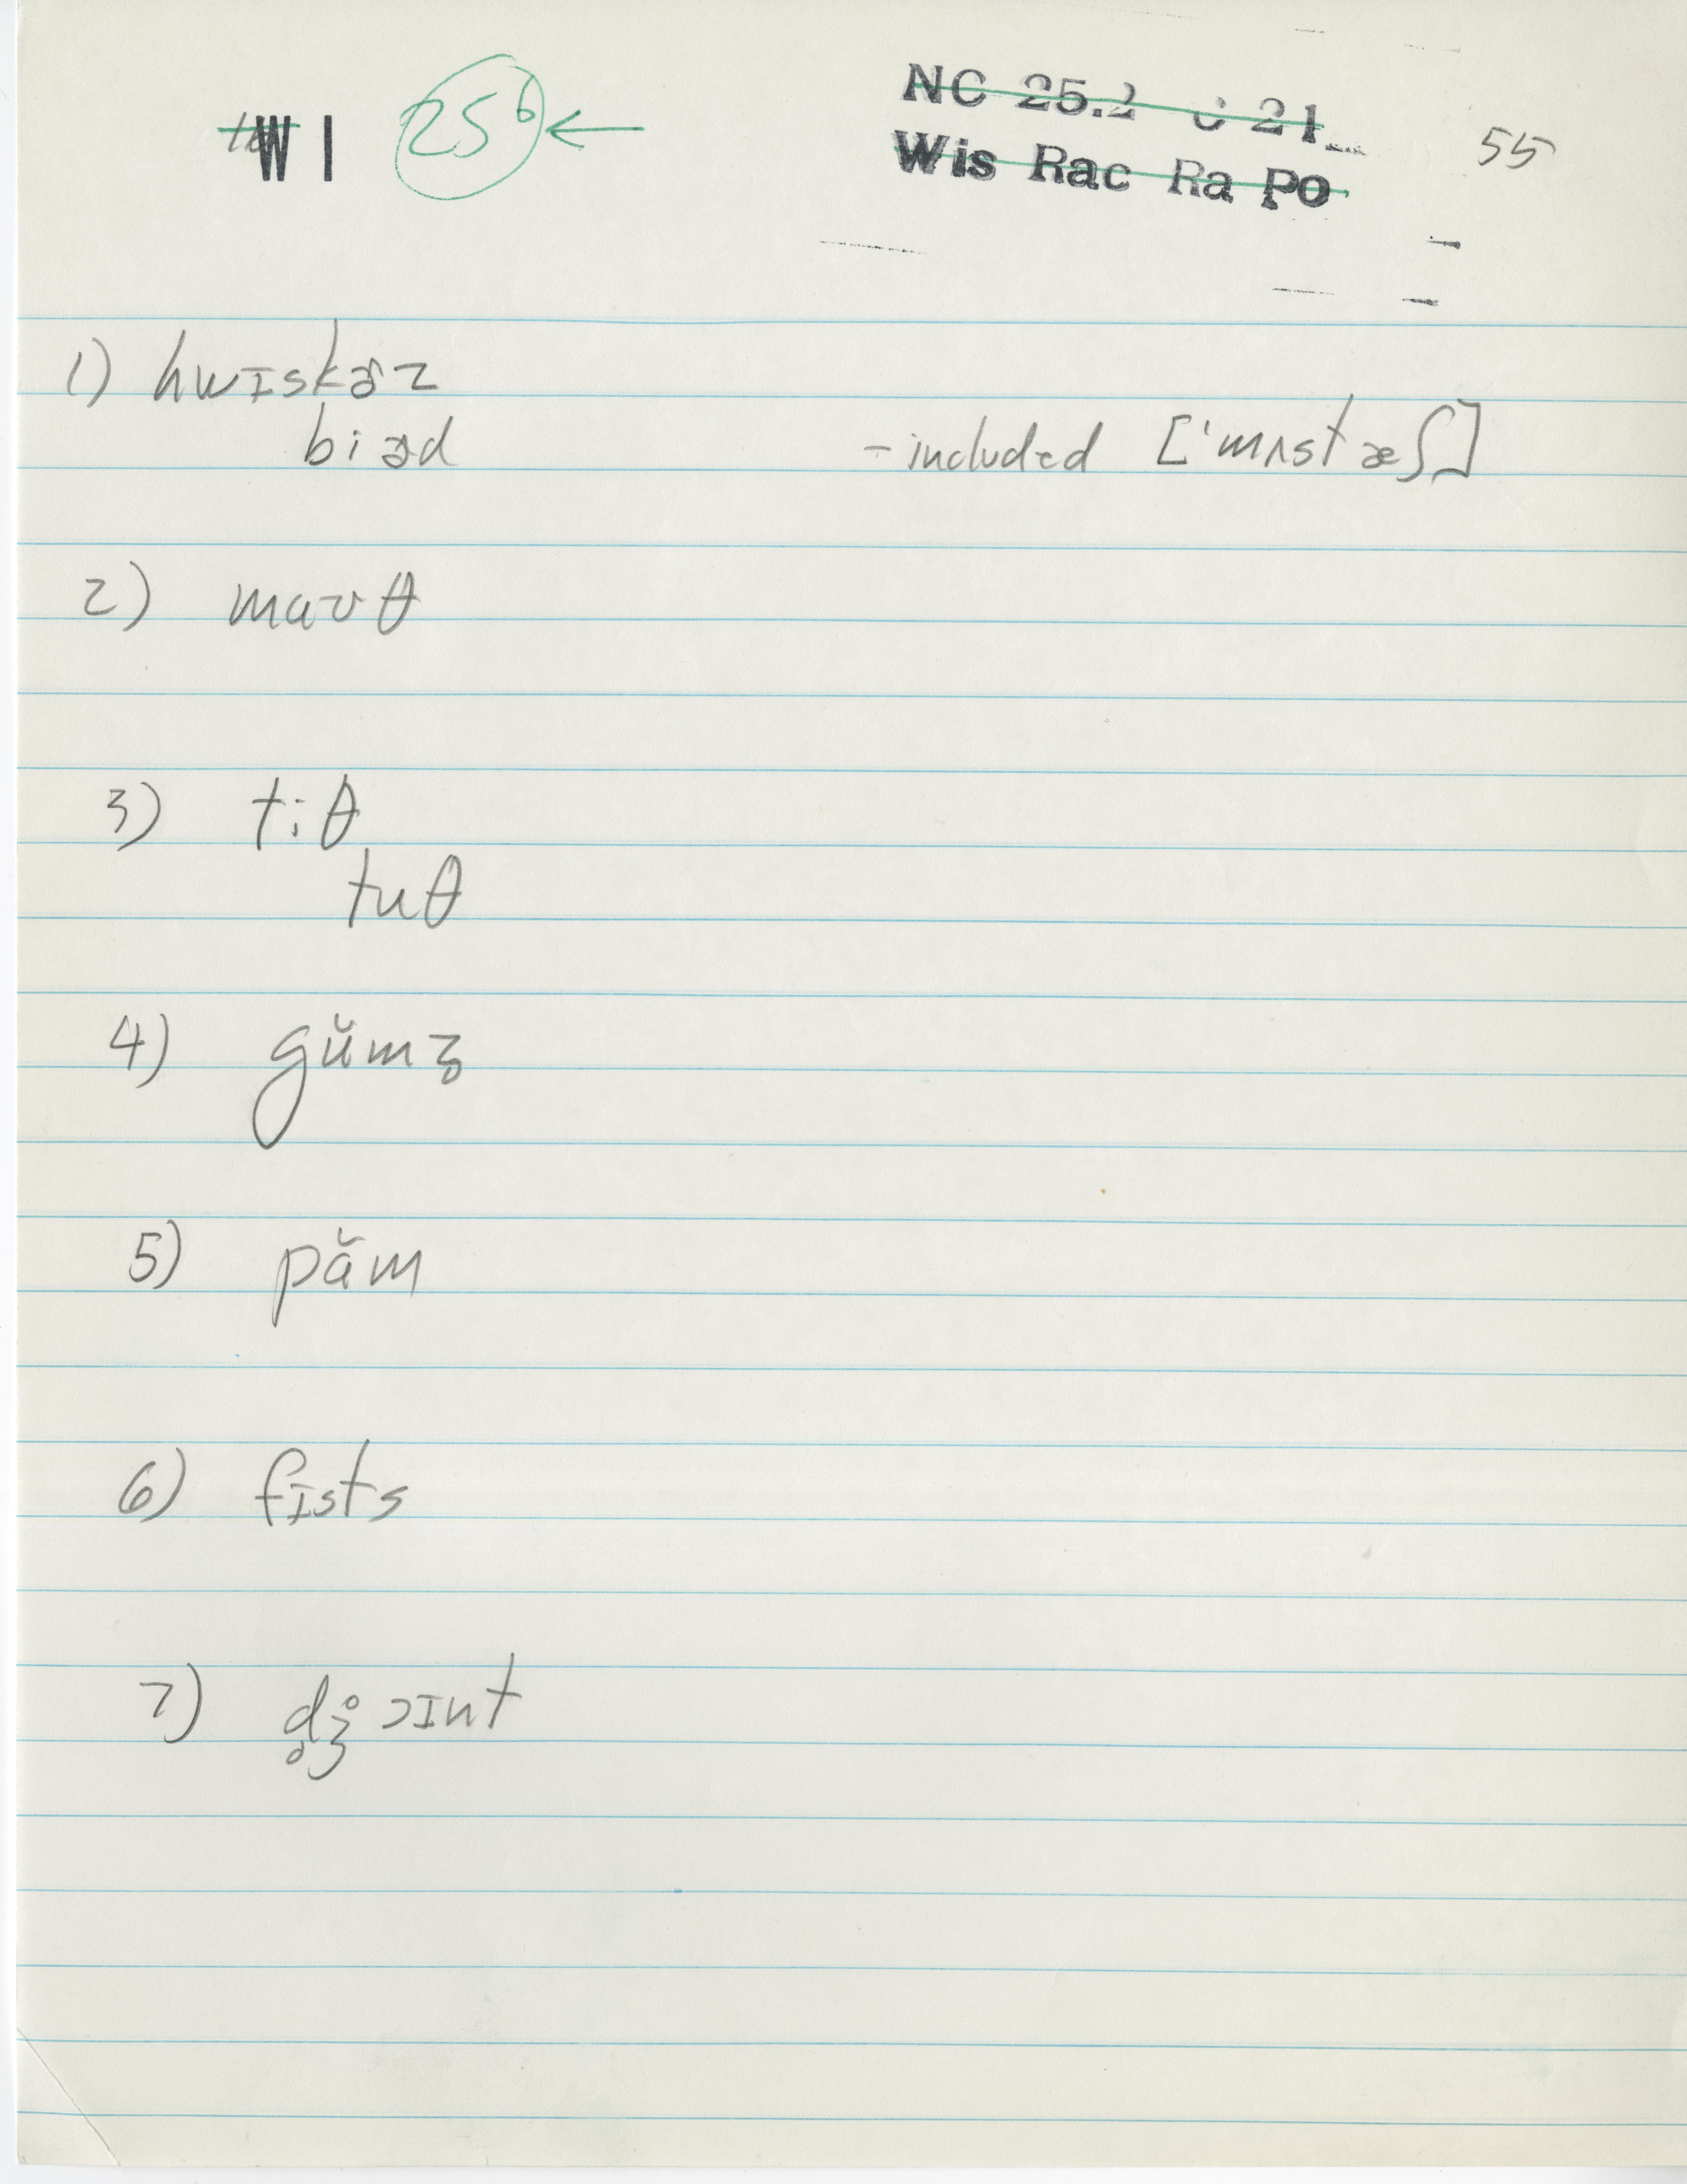 WI 25⁶ ←
NC 25.2 c 21
Wis Rac Ra Po
55
1) hwɪskɚz
biɚd
- included [ˈmʌstæʃ]
2) mauθ
3) tiθ
tuθ
4) gŭmz̥
5) păm
6) fɪsts
7) d̥ʒ̊ɔɪnt